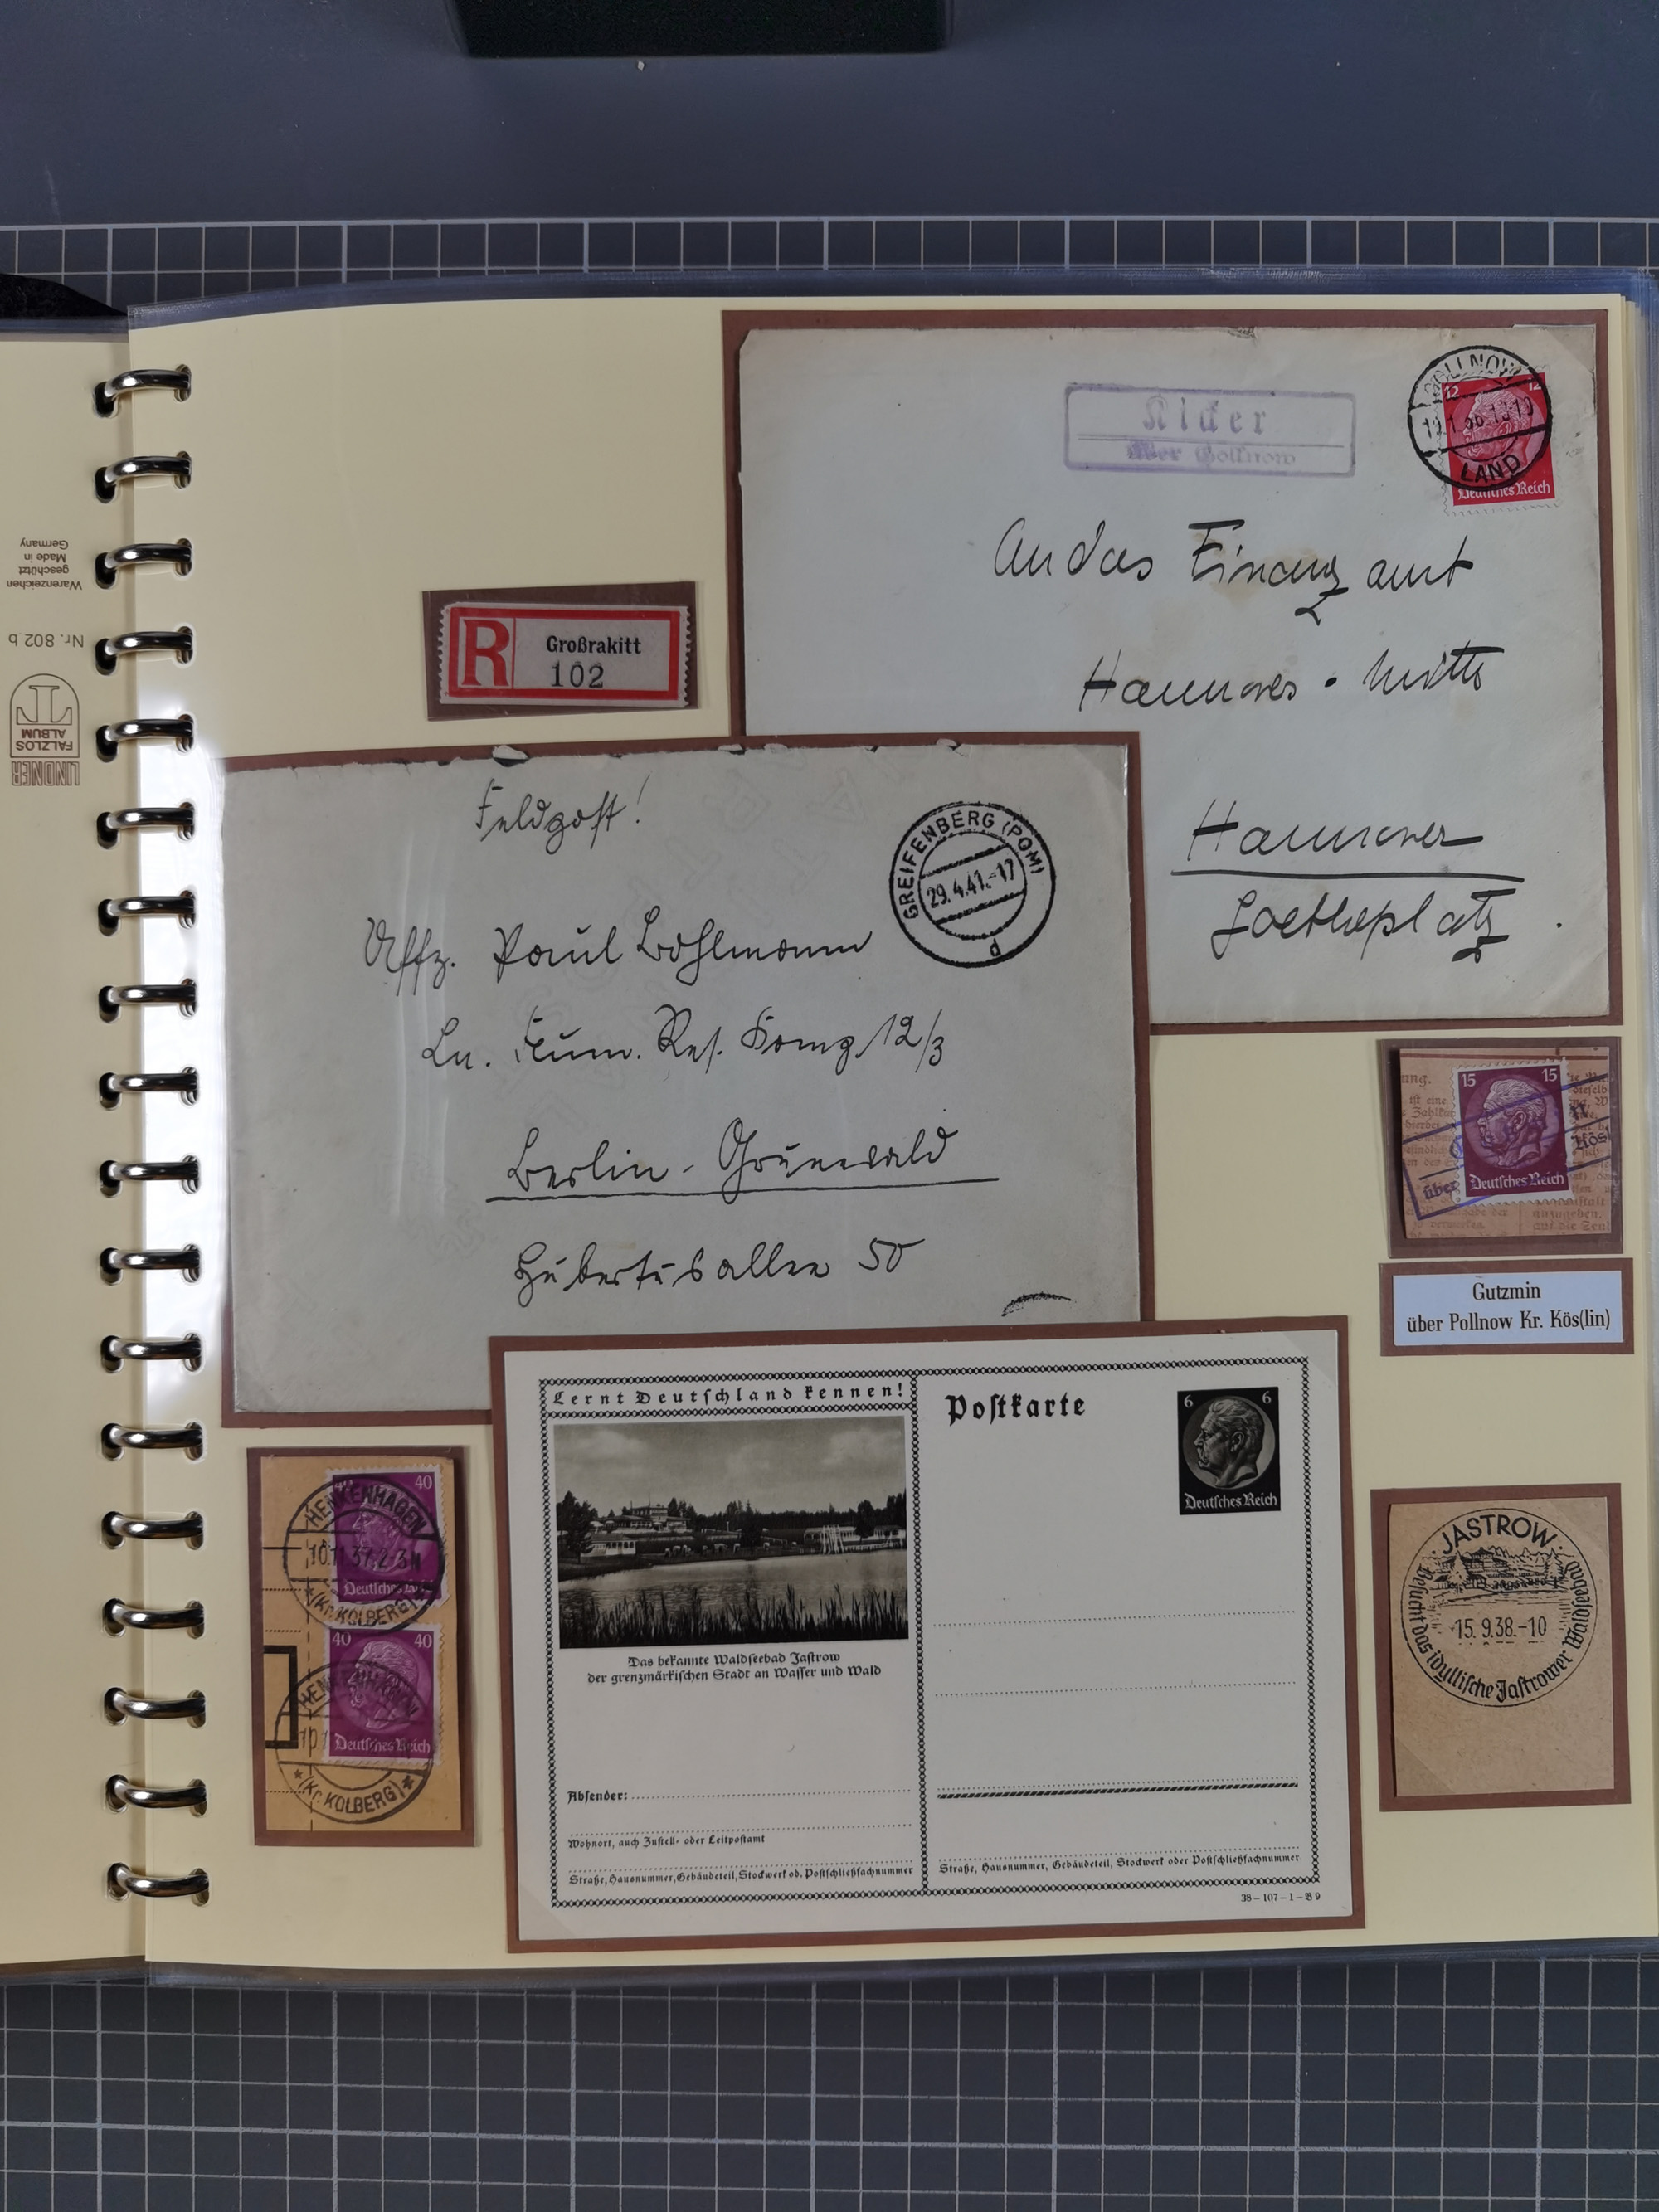 Warenzeichen
geschützt
Made in
Germany
Nr. 802 b
FALZLOS
ALBUM
LINDNER
R
Großrakitt
102
über Pollnow
POLLNOW
LAND
12 12
Deutsches Reich
An das Finanzamt
Hannover • Mitte
Hannover
Goetheplatz
Feldpost!
GREIFENBERG (POM)
29.4.41.-17
d
Uffz. Paul Bohlmann
Ln.
12/3
Berlin-Grunewald
Hubertusallee 50
15 15
Deutsches Reich
über
Kös
Gutzmin
über Pollnow Kr. Kös(lin)
Lernt Deutschland kennen!
Das bekannte Waldseebad Jastrow
der grenzmärkischen Stadt an Wasser und Wald
Absender:
Wohnort, auch Zustell- oder Leitpostamt
Straße, Hausnummer, Gebäudeteil, Stockwerk od. Postschließfachnummer
Postkarte
6 6
Deutsches Reich
Straße, Hausnummer, Gebäudeteil, Stockwerk oder Postschließfachnummer
38-107-1-B9
40
HENKENHAGEN
Deutsches
(Kr. KOLBERG)
40 40
Deutsches Reich
*(Kr. KOLBERG)*
JASTROW
15.9.38.-10
Besucht das idyllische Jastrower Waldseebad